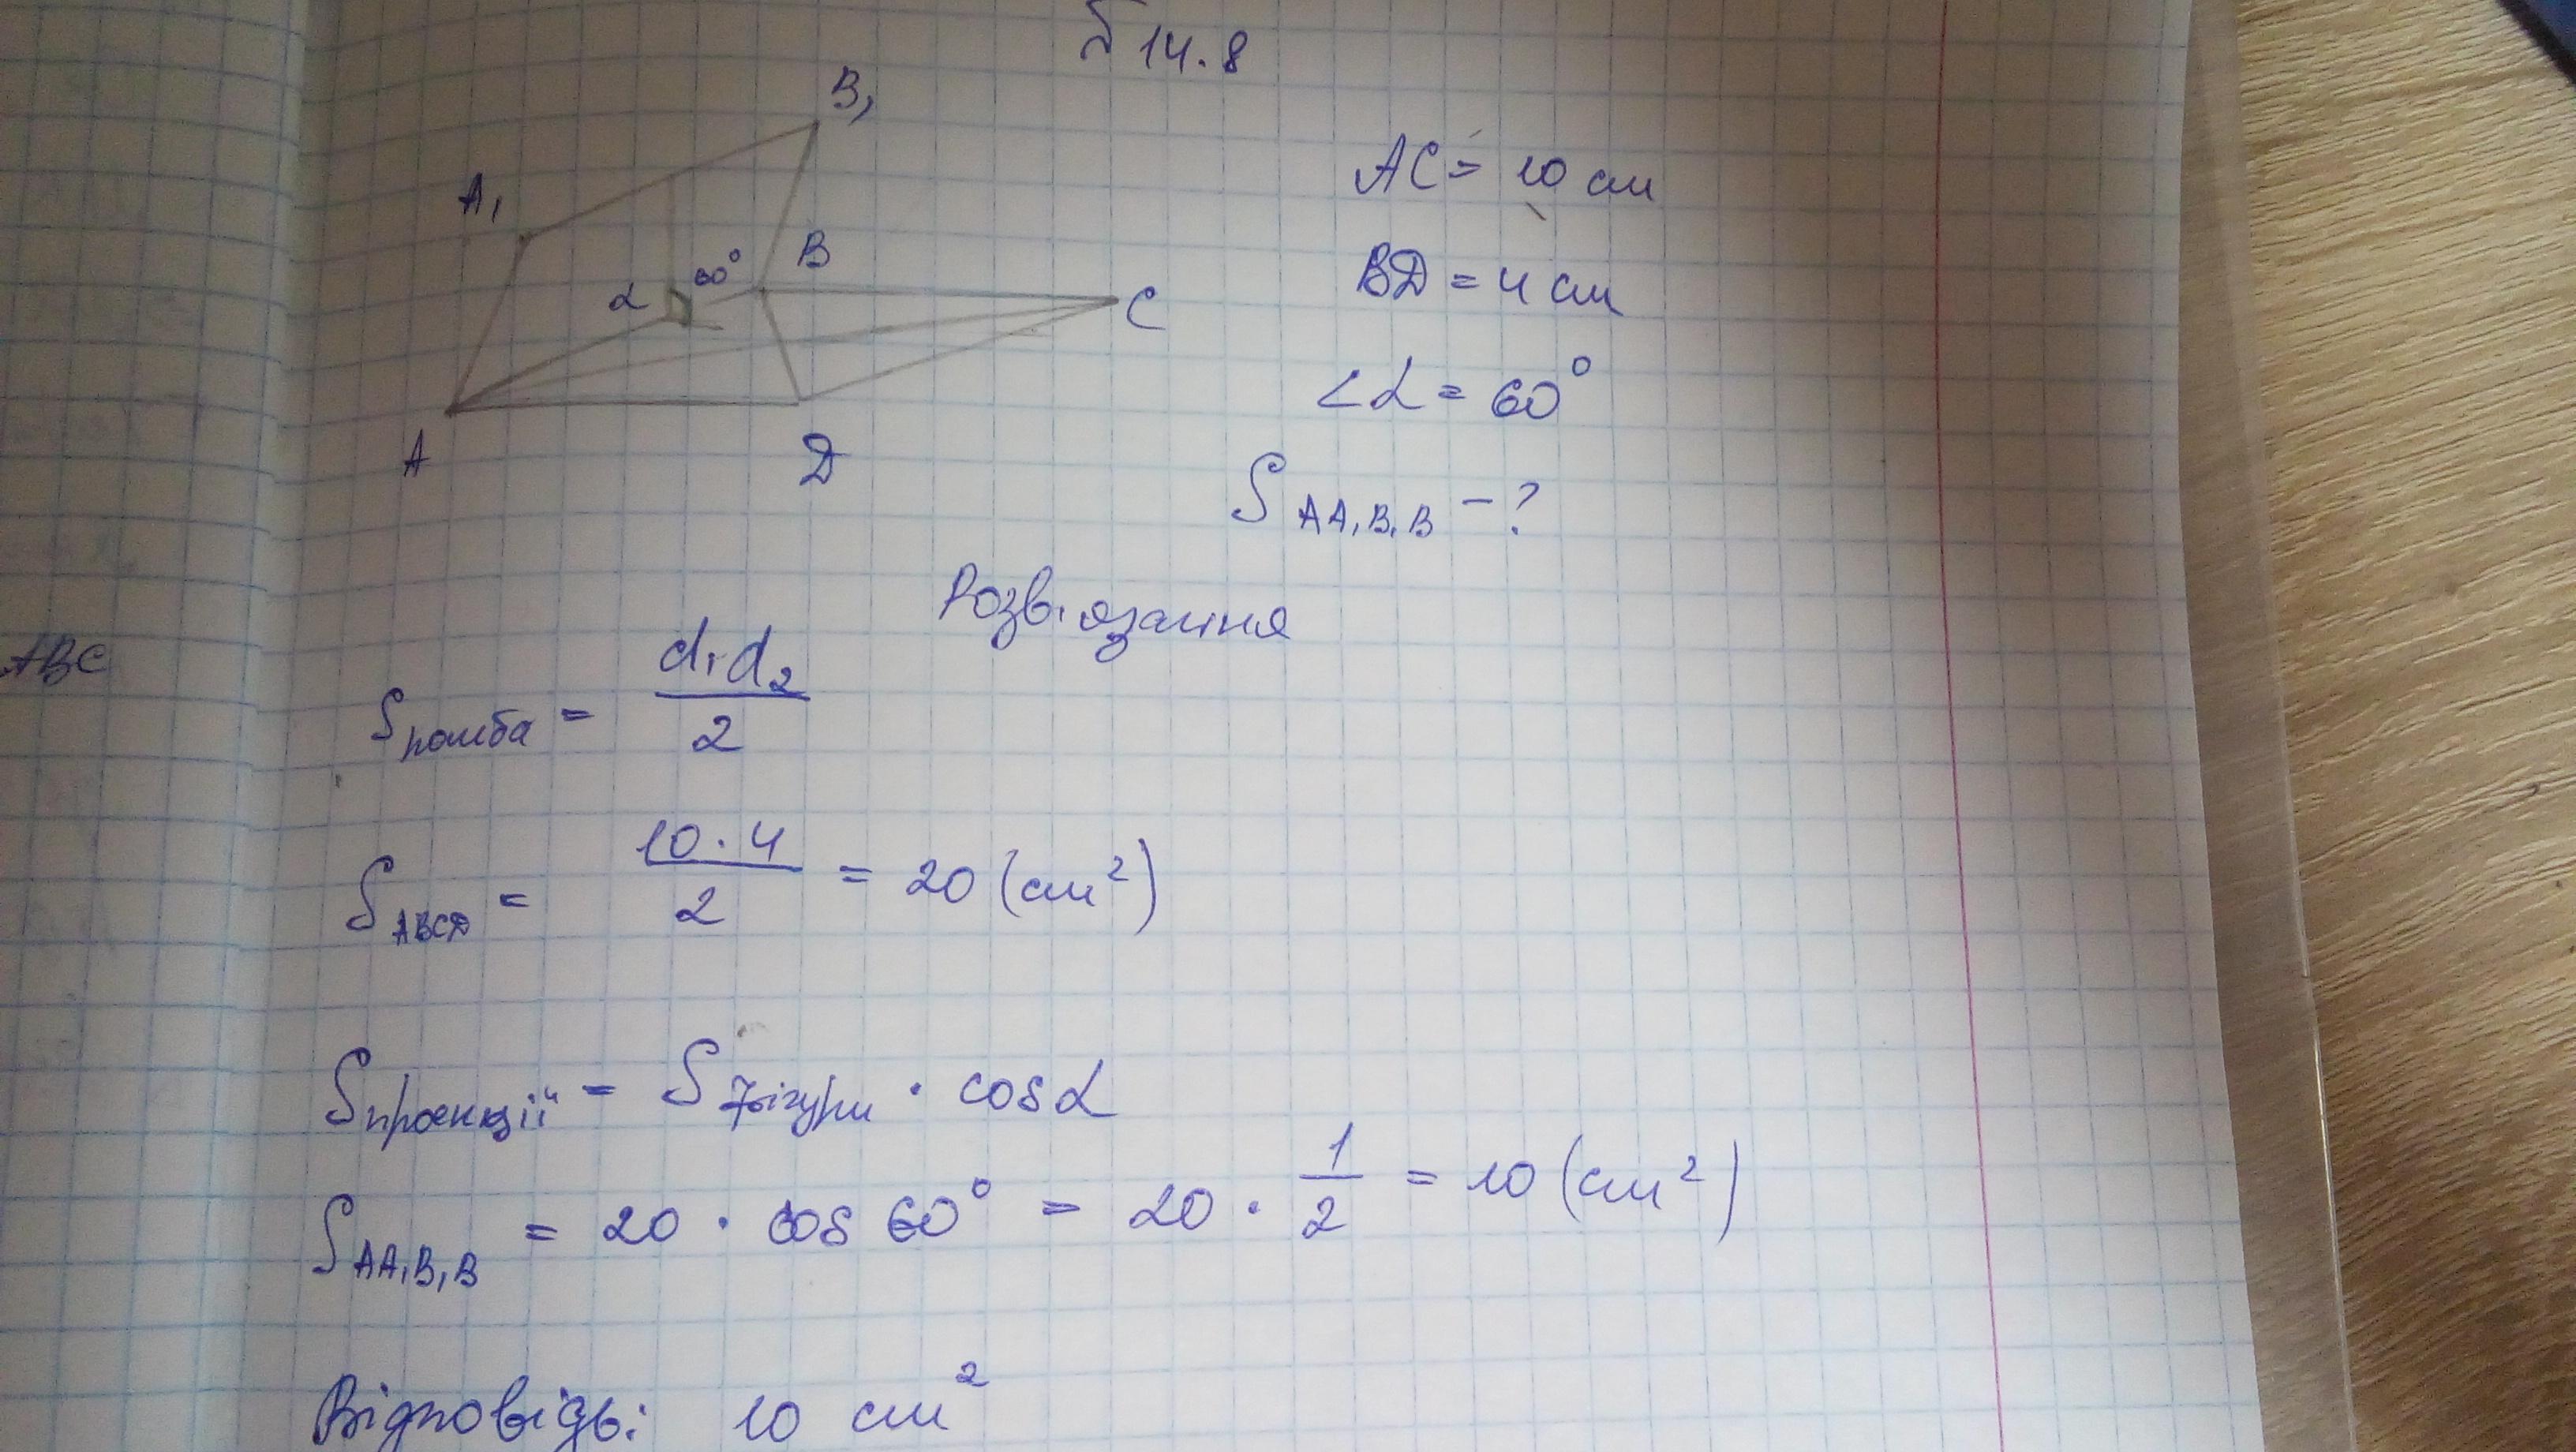 14.8
B₁
A₁
B
α 60°
C
A
D
AC = 10 см
BD = 4 см
∠α = 60°
S AA₁B₁B - ?
Розв'язання
ABC
S ромба = d₁d₂ / 2
S ABCD = 10 · 4 / 2 = 20 (см²)
S проекції = S фігури · cos α
S AA₁B₁B = 20 · cos 60° = 20 · 1/2 = 10 (см²)
Відповідь: 10 см²